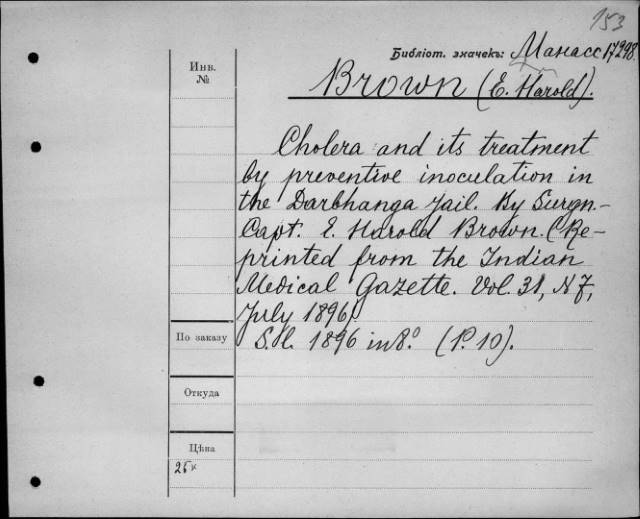 153
Библіот. значекъ: Манасс 17298.
Инв.
№
Brown (E. Harold).
Cholera and its treatment
by preventive inoculation in
the Darbhanga jail. By Surgn.-
Capt. E. Harold Brown. (Re-
printed from the Indian
Medical Gazette. Vol. 31, N 7,
July 1896).
По заказу
S. l. 1896 in 8.° (P. 10).
Откуда
Цѣна
25к